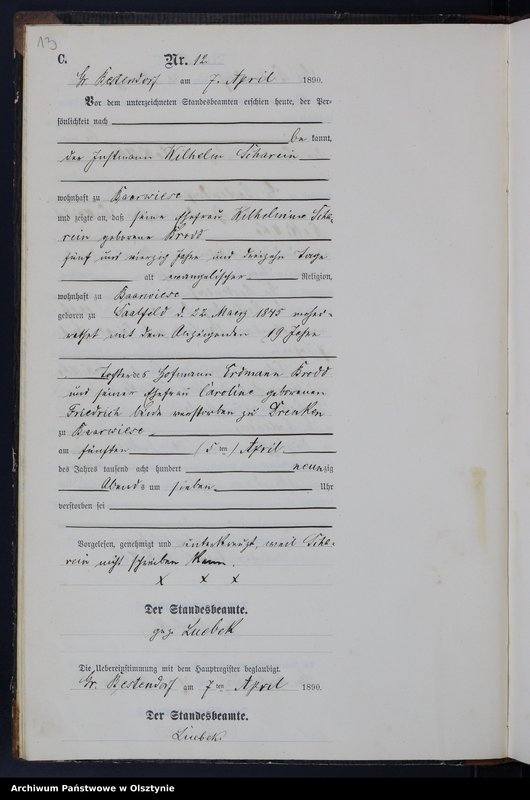 13
C.
Nr. 12
Gr. Bestendorf am 7. April 1890.
Vor dem unterzeichneten Standesbeamten erschien heute, der Per-
sönlichkeit nach
be kannt,
der Instmann Wilhelm Scharein
wohnhaft zu Baarwiese
und zeigte an, daß seine Ehefrau Wilhelmine Scha-
rein geborene Krodd
fünf und vierzig Jahre und dreizehn Tage
alt evangelischer Religion,
wohnhaft zu Baarwiese
geboren zu Saalfeld d. 22 Maerz 1845 verhei-
rathet mit dem Anzeigenden 19 Jahre
Tochter des Hofmann Erdmann Krodd
und seiner Ehefrau Caroline geborenen
Friedrich beide verstorben zu Drenken
zu Baarwiese
am fünften (5 ten) April
des Jahres tausend acht hundert neunzig
Abends um sieben Uhr
verstorben sei
Vorgelesen, genehmigt und unterkreuzt, weil Scha-
rein nicht schreiben kann.
x x x
Der Standesbeamte.
gez. Luebek
Die Uebereinstimmung mit dem Hauptregister beglaubigt.
Gr. Bestendorf am 7ten April 1890.
Der Standesbeamte.
Luebek.
Archiwum Państwowe w Olsztynie